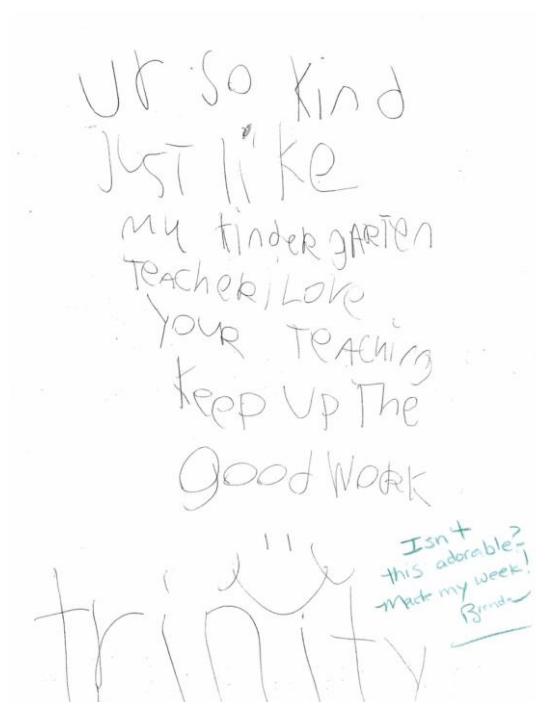 Ur so kind
just like
my kindergarten
teacher i Love
your teaching
keep up the
good work
trinity
Isn't
this adorable?
Made my week!
Brenda